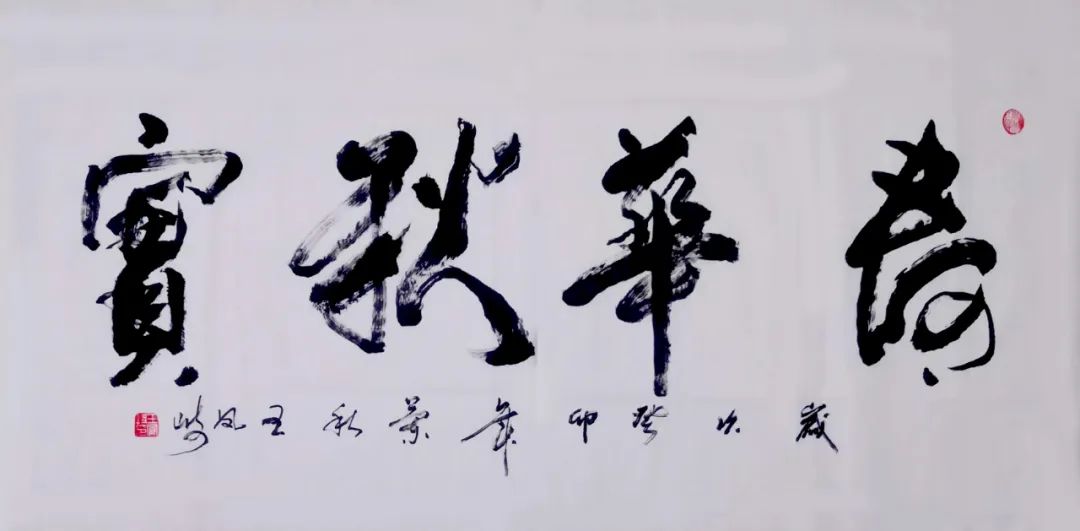 春華秋實
歲次癸卯年菊秋王凤